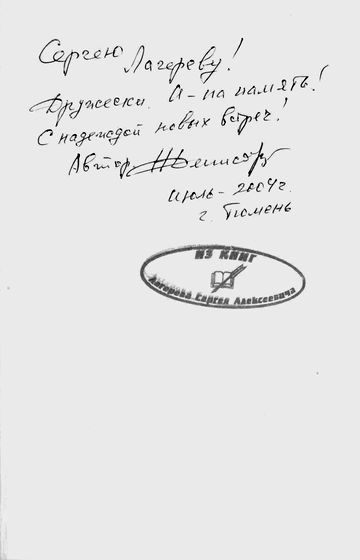 Сергею Лагереву!
Дружески. И – на память!
С надеждой новых встреч!
Автор
июль – 2004 г.
г. Тюмень
ИЗ КНИГ
Лагерева Сергея Алексеевича